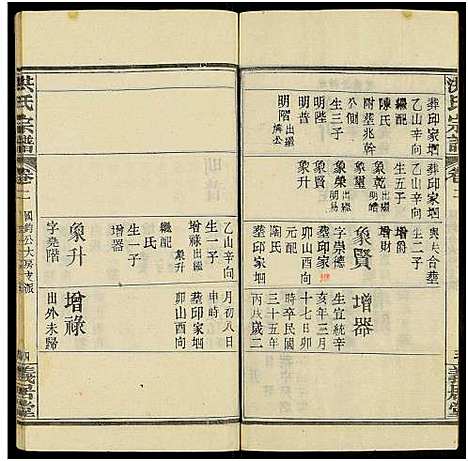 洪氏宗譜
卷二
義居堂
葬邱家堌
乙山辛向
繼配
陳氏
附墓兆幹
公側
生三子
明普
明階出繼
葬邱家堌
乙山辛向
生五子
象乾出繼
象璽
象榮出繼
象賢
象升
與夫合墓
生二子
增爵
增財
象賢
字崇德
卯山酉向
葬邱家堌
元配
陶氏
墓邱家堌
增器
生宣統辛
亥年三月
十七日卯
時卒民國
三十五年
丙戌歲二
乙山辛向
生一子
增祿出繼
象升
繼配
氏
生一子
增器
象升
字堯階
月初八日
墓邱家堌
卯山酉向
增祿
出外未歸
洪氏宗譜
卷二
國鈞公大房支派
四
義居堂